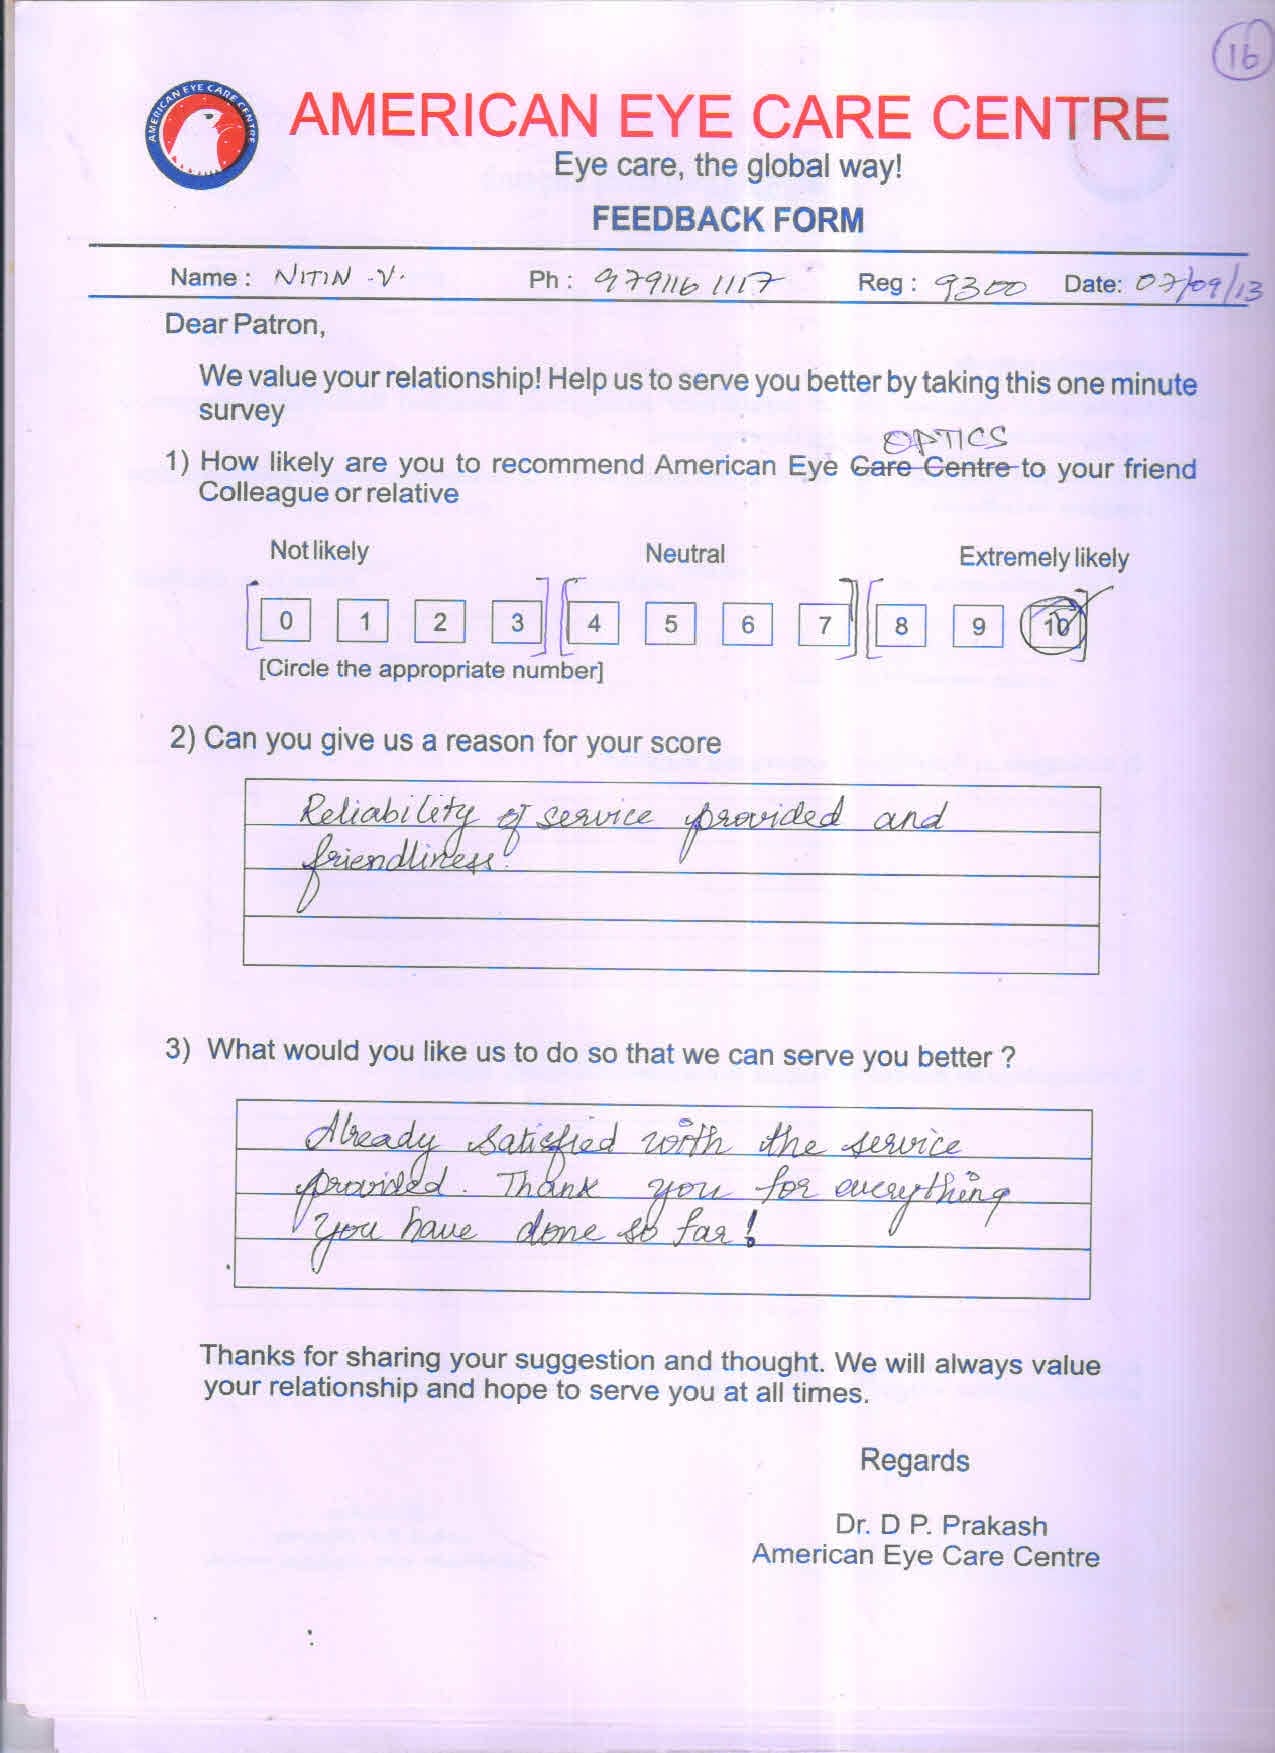 16
AMERICAN EYE CARE CENTRE
AMERICAN EYE CARE CENTRE
Eye care, the global way!
FEEDBACK FORM
Name : NITIN .V. Ph : 979116 1117 Reg : 9300 Date: 07/09/13
Dear Patron,
We value your relationship! Help us to serve you better by taking this one minute
survey
OPTICS
1) How likely are you to recommend American Eye Care Centre to your friend
Colleague or relative
Not likely Neutral Extremely likely
0 1 2 3 4 5 6 7 8 9 10
[Circle the appropriate number]
2) Can you give us a reason for your score
Reliability of service provided and
friendliness.
3) What would you like us to do so that we can serve you better ?
Already satisfied with the service
provided. Thank you for everything
you have done so far!
Thanks for sharing your suggestion and thought. We will always value
your relationship and hope to serve you at all times.
Regards
Dr. D P. Prakash
American Eye Care Centre